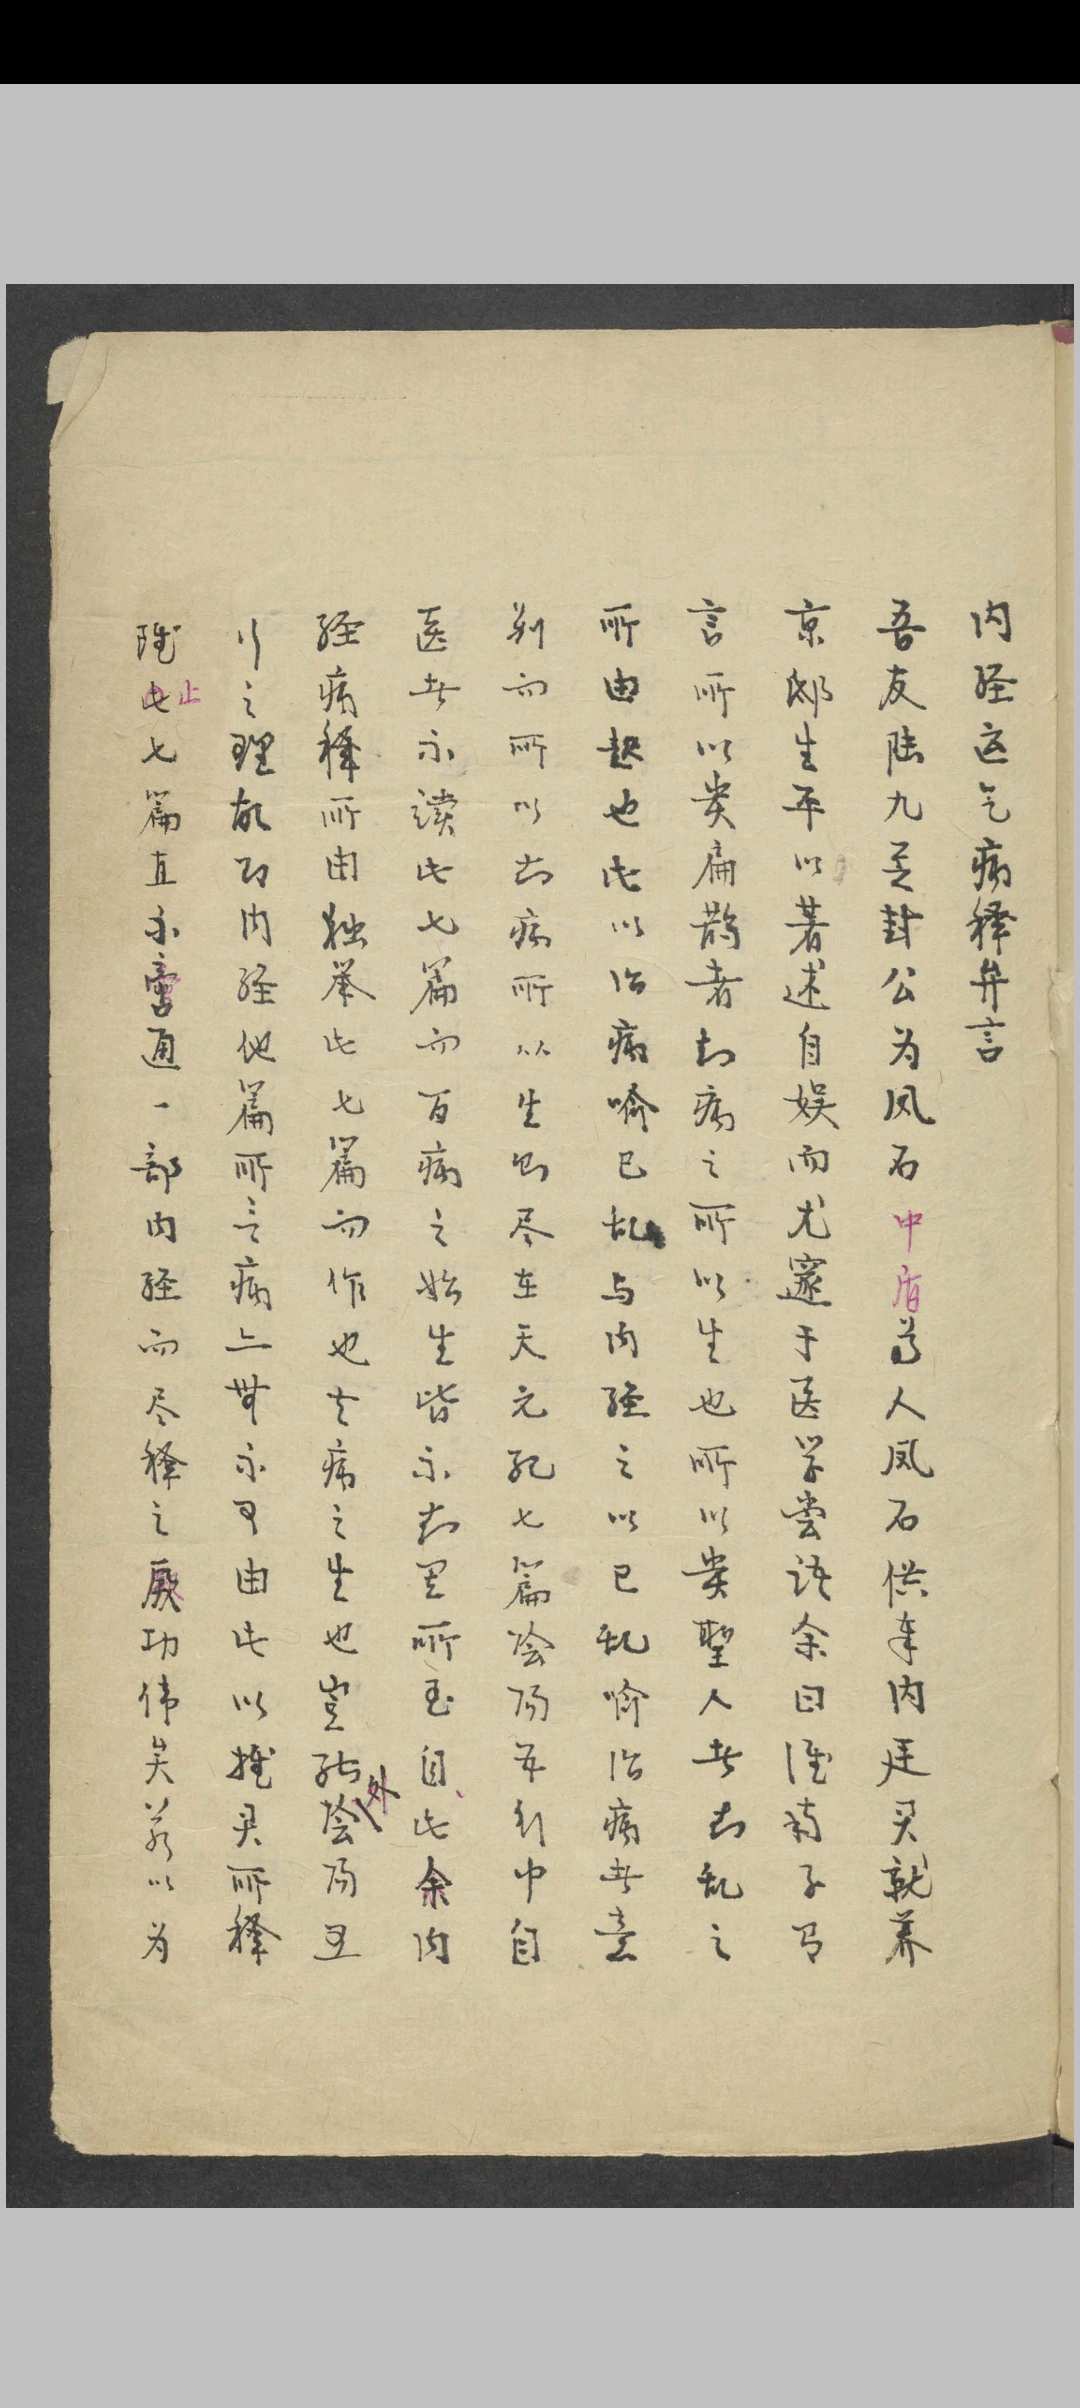 内经运气病释弁言
吾友陆九芝封公为凤石中启尊人凤石供奉内廷君就养
京邸生平以著述自娱而尤邃于医学尝语余曰淮南子有
言所以贵扁鹊者知病之所以生也所以贵聖人者知乱之
所由起也此以治病喻已乱与内经之以已乱喻治病者意
别而所以知病所以生则尽在天元纪七篇阴阳五行中自
医者不读此七篇而百病之始生皆不知其所至自此余内
经病释所由独举此七篇而作也夫病之生也岂能外阴阳五
行之理故即内经他篇所言病亦无不可由此以推君所释
虽止七篇直不啻通一部内经而尽释之厥功伟矣若以为